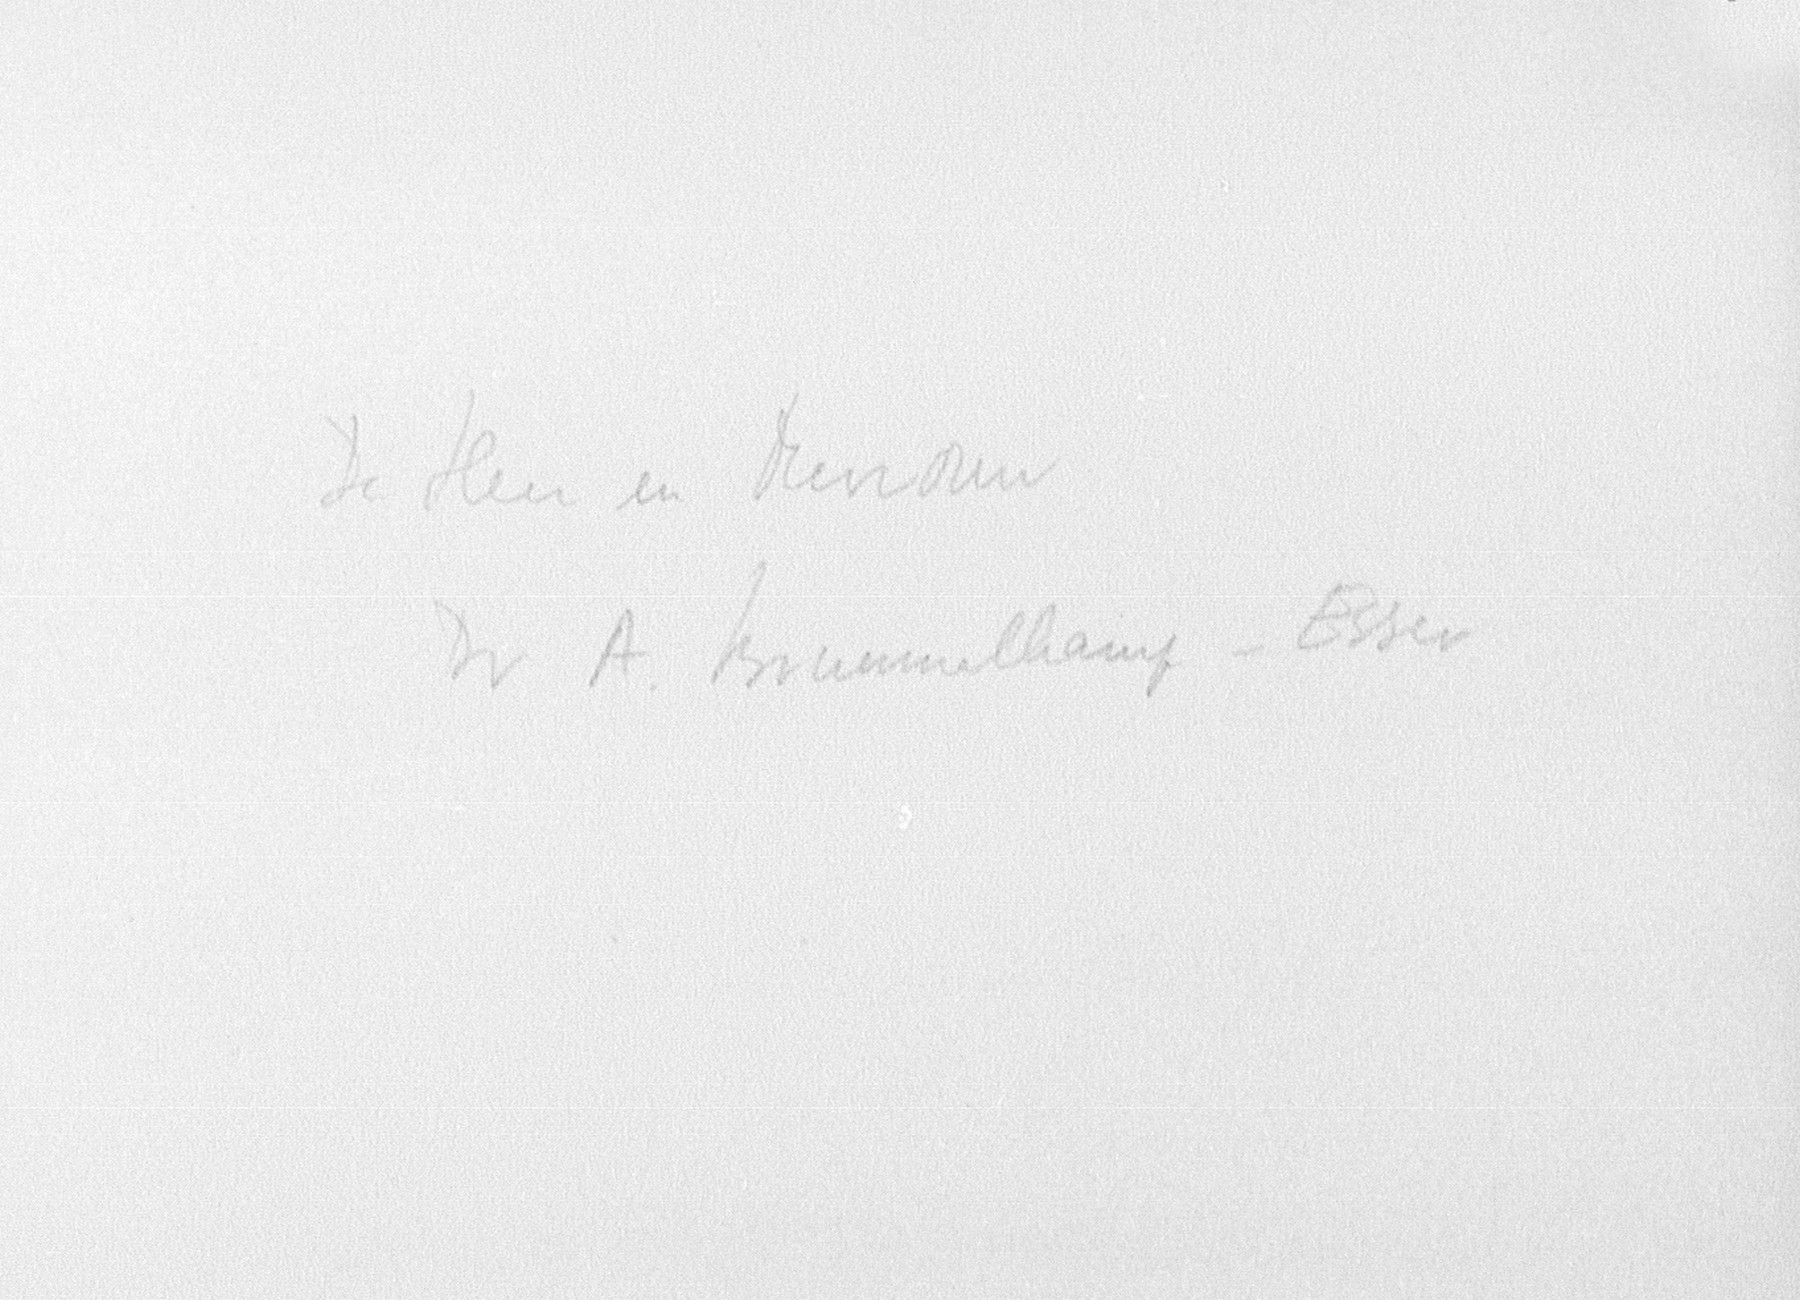 De Heer en Mevrouw
Dr A. Brummelkamp - Esser